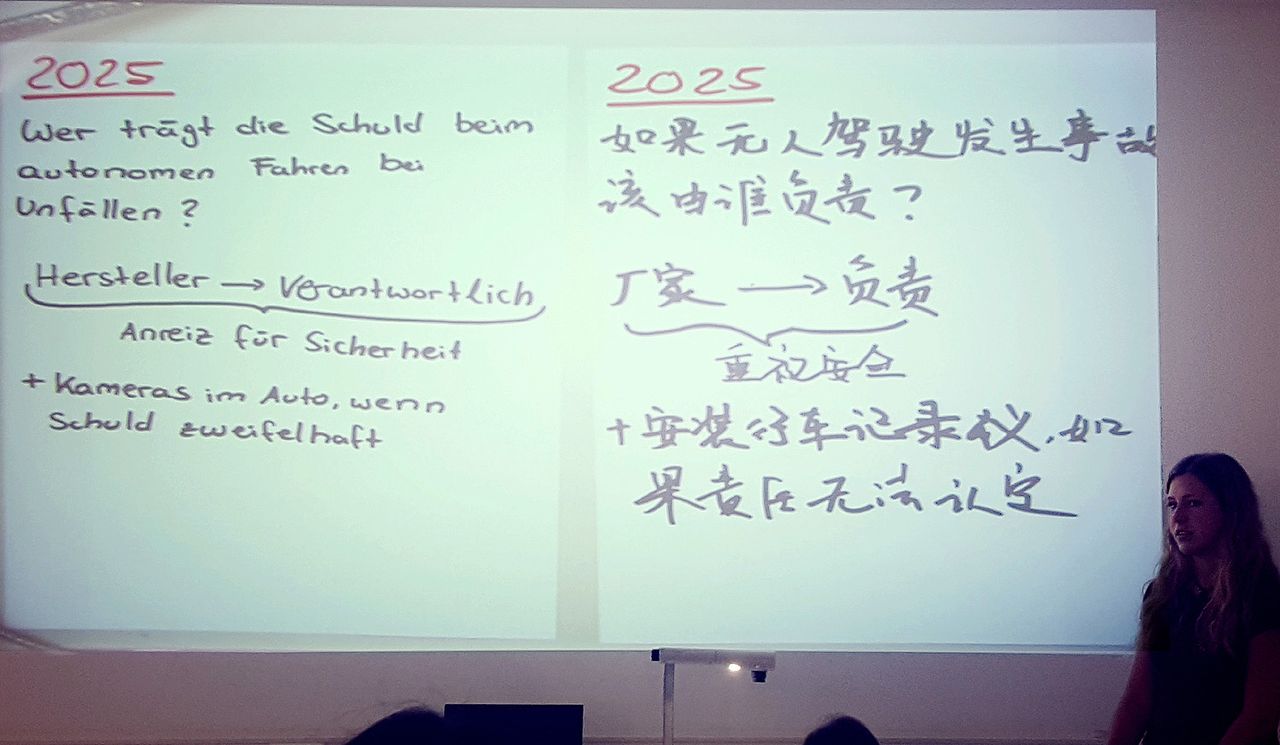 2025
Wer trägt die Schuld beim
autonomen Fahren bei
Unfällen?
Hersteller → Verantwortlich
Anreiz für Sicherheit
+ Kameras im Auto, wenn
Schuld zweifelhaft
2025
如果无人驾驶发生事故
该由谁负责？
厂家 → 负责
重视安全
+安装行车记录仪,如
果责任无法认定